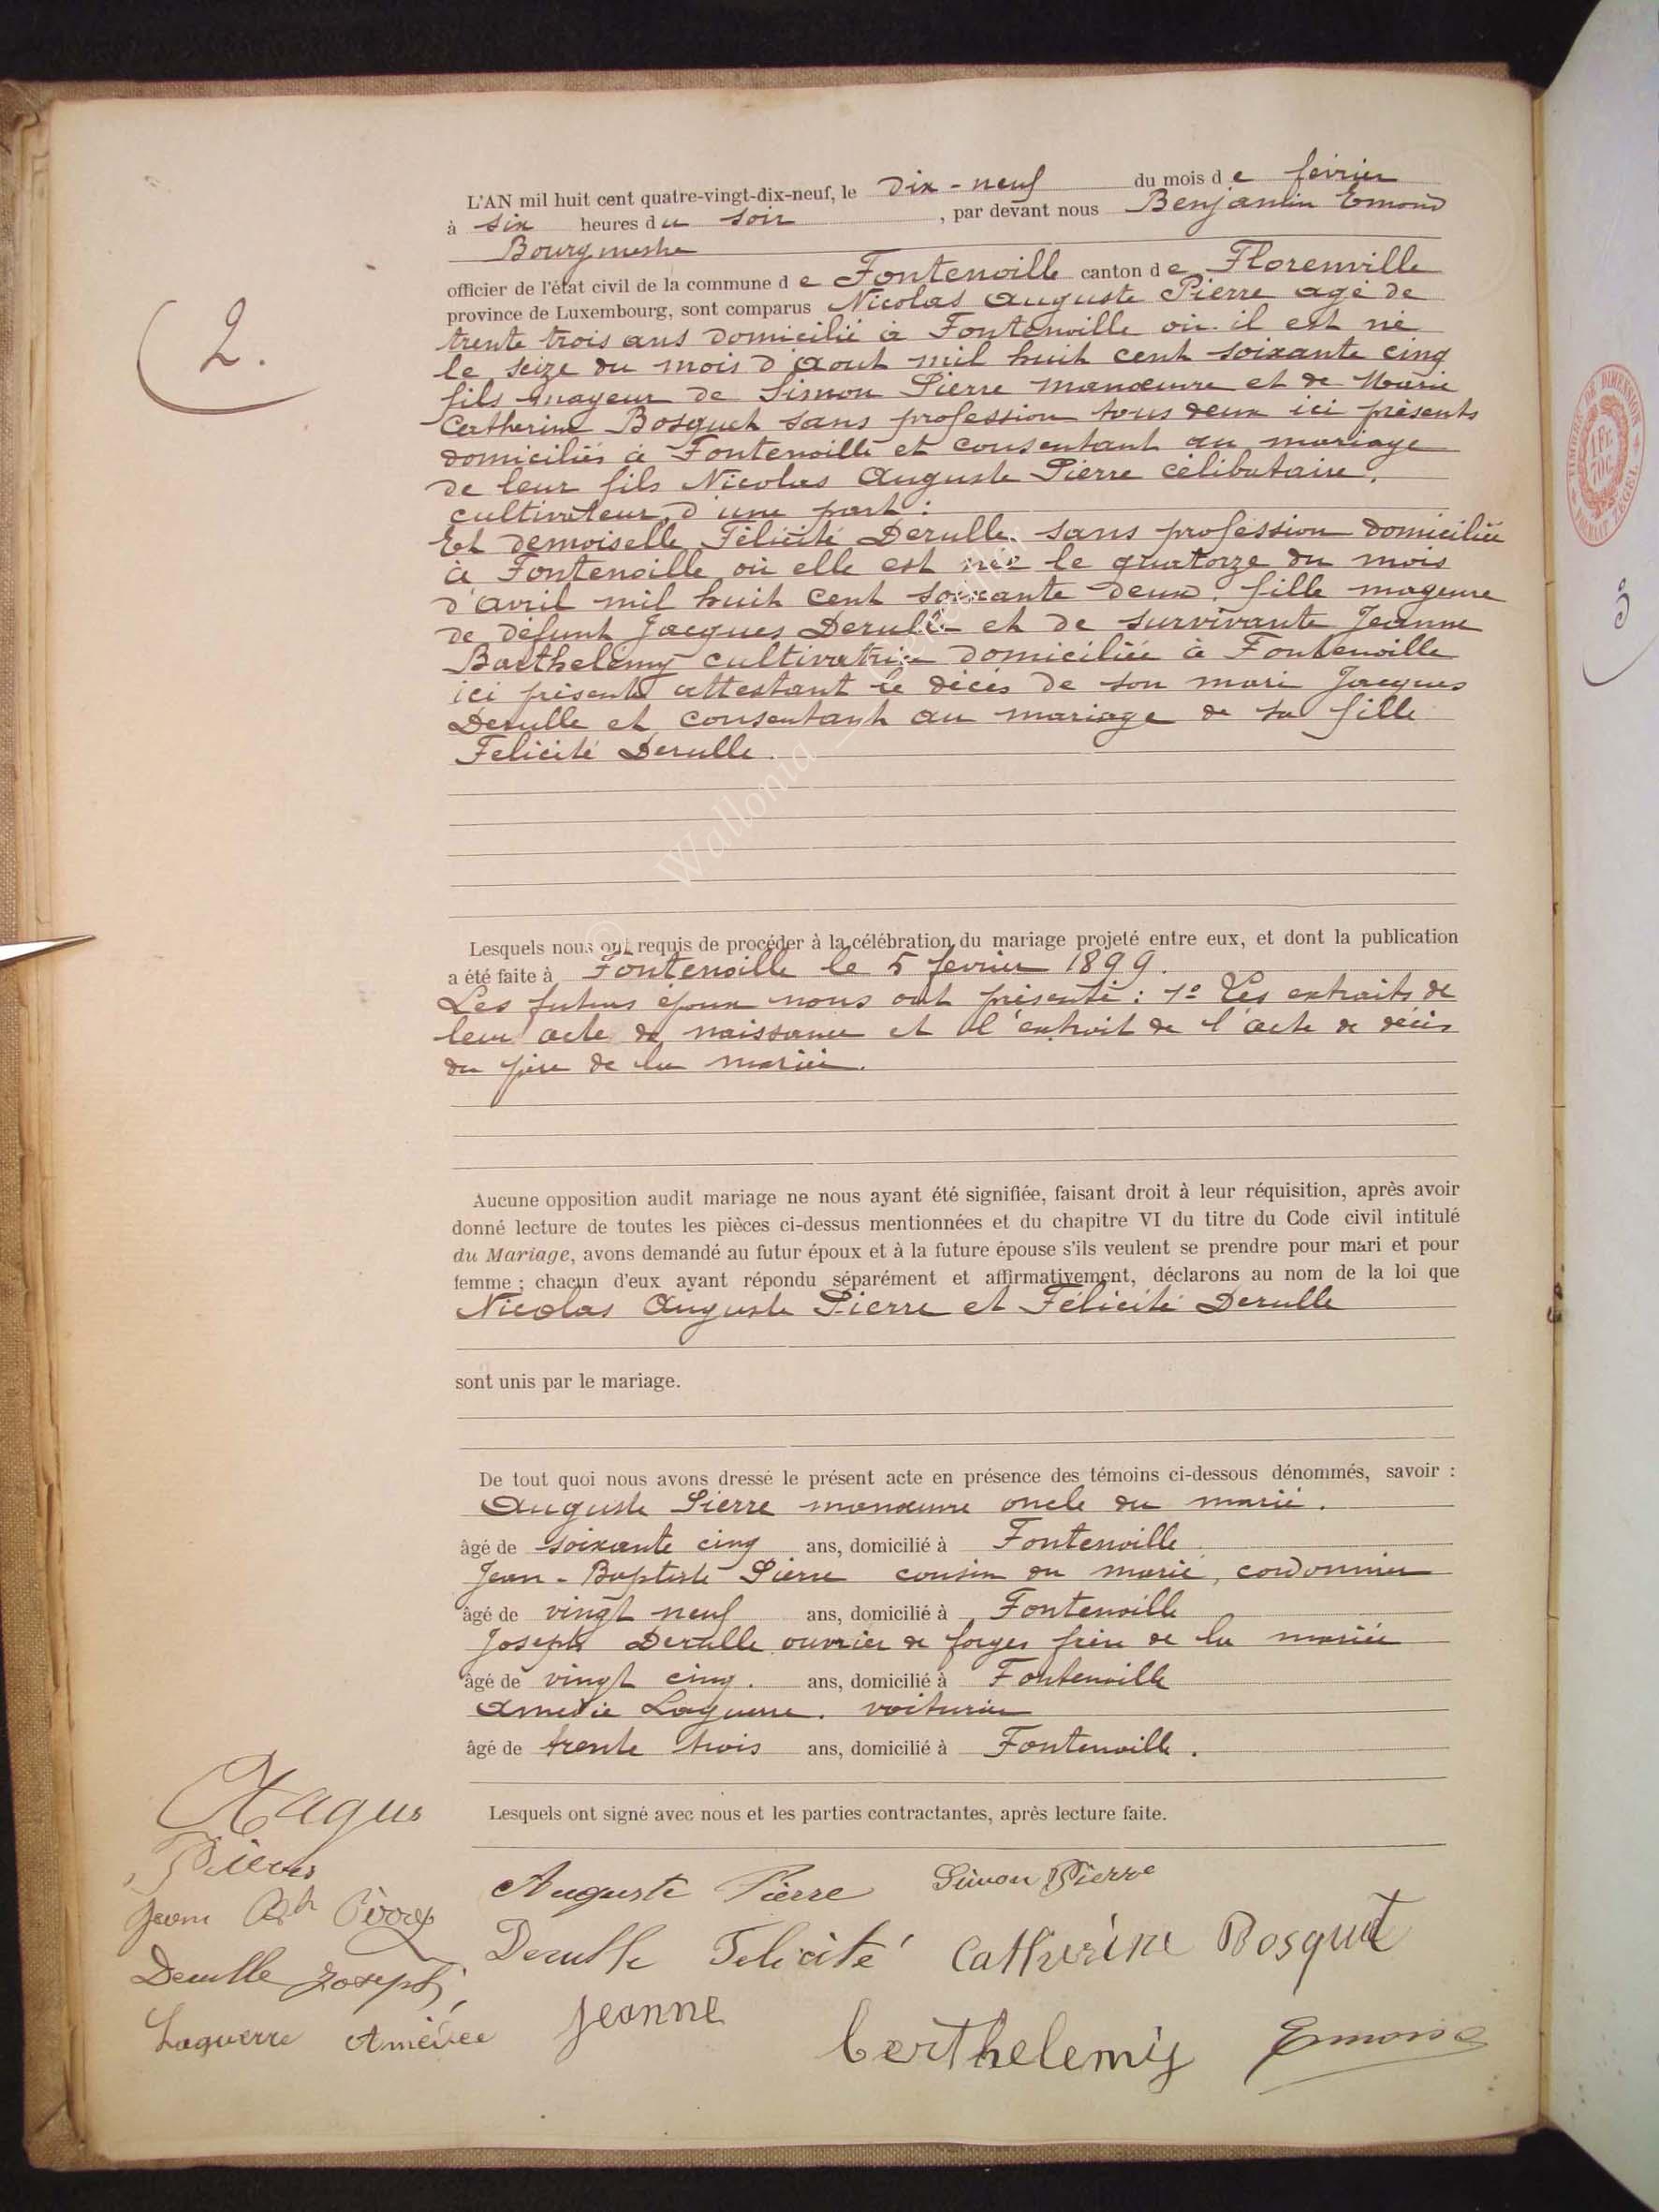 2.
L'AN mil huit cent quatre-vingt-dix-neuf, le Dix-neuf du mois de février
à six heures du soir, par devant nous Benjamin Emond
Bourgmestre
officier de l'état civil de la commune de Fontenoille canton de Florenville
province de Luxembourg, sont comparus Nicolas Auguste Pierre agé de
trente trois ans domicilié à Fontenoille où il est né
le seize du mois d'aout mil huit cent soixante cinq
fils mageur de Simon Pierre manœuvre et de Marie
Catherine Bosquet sans profession tous deux ici présents
domiciliés à Fontenoille et consentant au mariage
de leur fils Nicolas Auguste Pierre célibataire,
cultivateur, d'une part :
Et demoiselle Félicité Derulle, sans profession domiciliée
à Fontenoille où elle est née le quatorze du mois
d'avril mil huit cent soixante deux, fille mageure
de défunt Jacques Derulle et de survivante Jeanne
Barthelémy cultivatrice domiciliée à Fontenoille
ici présente attestant le décès de son mari Jacques
Derulle et consentant au mariage de sa fille
Felicité Derulle.
Lesquels nous ont requis de procéder à la célébration du mariage projeté entre eux, et dont la publication
a été faite à Fontenoille le 5 fevrier 1899.
Les futurs époux nous ont présenté : 1º Les extraits de
leur acte de naissance et l'extrait de l'acte de décès
du père de la mariée.
Aucune opposition audit mariage ne nous ayant été signifiée, faisant droit à leur réquisition, après avoir
donné lecture de toutes les pièces ci-dessus mentionnées et du chapitre VI du titre du Code civil intitulé
du Mariage, avons demandé au futur époux et à la future épouse s'ils veulent se prendre pour mari et pour
femme ; chacun d'eux ayant répondu séparément et affirmativement, déclarons au nom de la loi que
Nicolas Auguste Pierre et Félicité Derulle
sont unis par le mariage.
De tout quoi nous avons dressé le présent acte en présence des témoins ci-dessous dénommés, savoir :
Auguste Pierre manœuvre oncle du marié.
âgé de soixante cinq ans, domicilié à Fontenoille
Jean-Baptiste Pierre cousin du marié, cordonnier
âgé de vingt neuf ans, domicilié à Fontenoille
Joseph Derulle ouvrier de forges frère de la mariée
âgé de vingt cinq. ans, domicilié à Fontenoille
Amedée Laguerre. voiturier
âgé de trente trois ans, domicilié à Fontenoille.
Lesquels ont signé avec nous et les parties contractantes, après lecture faite.
Pierre
Auguste Pierre Simon Pierre
Jean Bth
Derulle Felicité Catherine Bosquet
Derulle Joseph
Laguerre Amédée
Jeanne
berthelemy Emond
TIMBRES DE DIMENSION
1 Fr.
70 C.
Wallonia